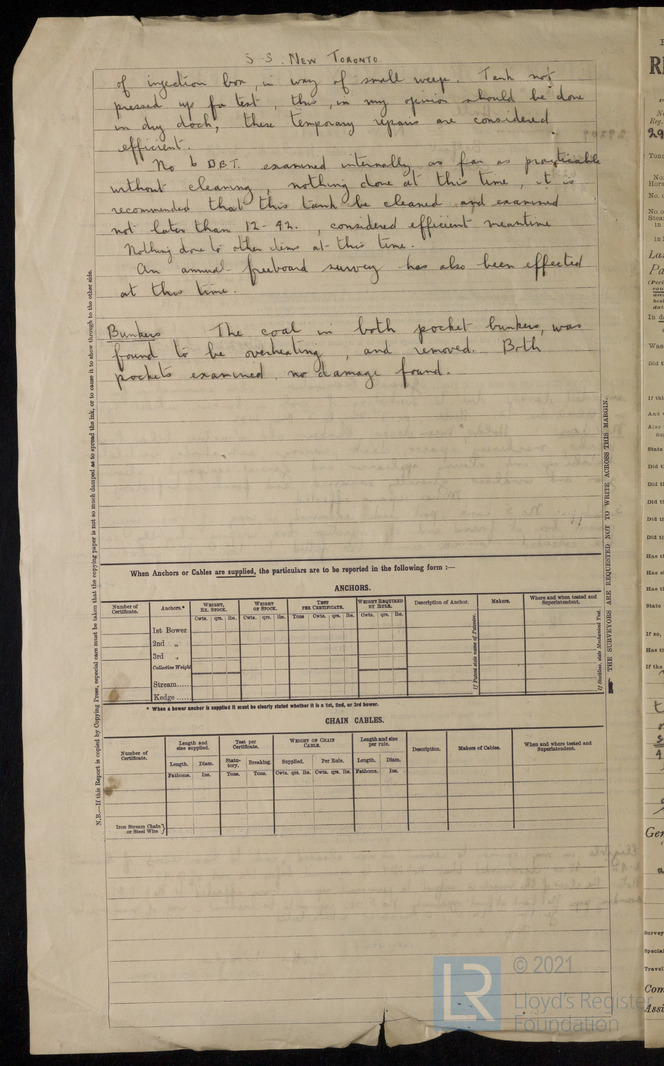 S.S. NEW TORONTO
of injection box, in way of small weep. Tank not
pressed up for test, this, in my opinion should be done
in dry dock, these temporary repairs are considered
efficient.
No 6 D.B.T. examined internally as far as practicable
without cleaning, nothing done at this time, it is
recommended that this tank be cleaned and examined
not later than 12-42, considered efficient meantime
Nothing done to other items at this time.
An annual freeboard survey has also been effected
at this time.
Bunkers The coal in both pocket bunkers, was
found to be overheating, and removed. Both
pockets examined no damage found.
N.B.—If this Report is copied by Copying Press, especial care must be taken that the copying paper is not so much damped as to spread the ink, or to cause it to show through to the other side.
THE SURVEYORS ARE REQUESTED NOT TO WRITE ACROSS THIS MARGIN.
When Anchors or Cables are supplied, the particulars are to be reported in the following form :—
ANCHORS.
Number of Certificate. Anchors.* WEIGHT, EX. STOCK. WEIGHT OF STOCK. TEST PER CERTIFICATE. WEIGHT REQUIRED BY RULE. Description of Anchor. Makers. Where and when tested and Superintendent.
Cwts. qrs. lbs. Cwts. qrs. lbs. Tons Cwts. qrs. lbs. Cwts. qrs. lbs.
1st Bower
2nd „
3rd „
Collective Weight
Stream
Kedge
If Patent state name of Patentee.
If Stockless, state Mechanical Test.
* When a bower anchor is supplied it must be clearly stated whether it is a 1st, 2nd, or 3rd bower.
CHAIN CABLES.
Number of Certificate. Length and size supplied. Test per Certificate. WEIGHT OF CHAIN CABLE. Length and size per rule. Description. Makers of Cables. When and where tested and Superintendent.
Length. Diam. Statutory. Breaking. Supplied. Per Rule. Length. Diam.
Fathoms. Ins. Tons. Tons. Cwts. qrs. lbs. Cwts. qrs. lbs. Fathoms. Ins.
Iron Stream Chain or Steel Wire
LR
© 2021
Lloyd's Register
Foundation